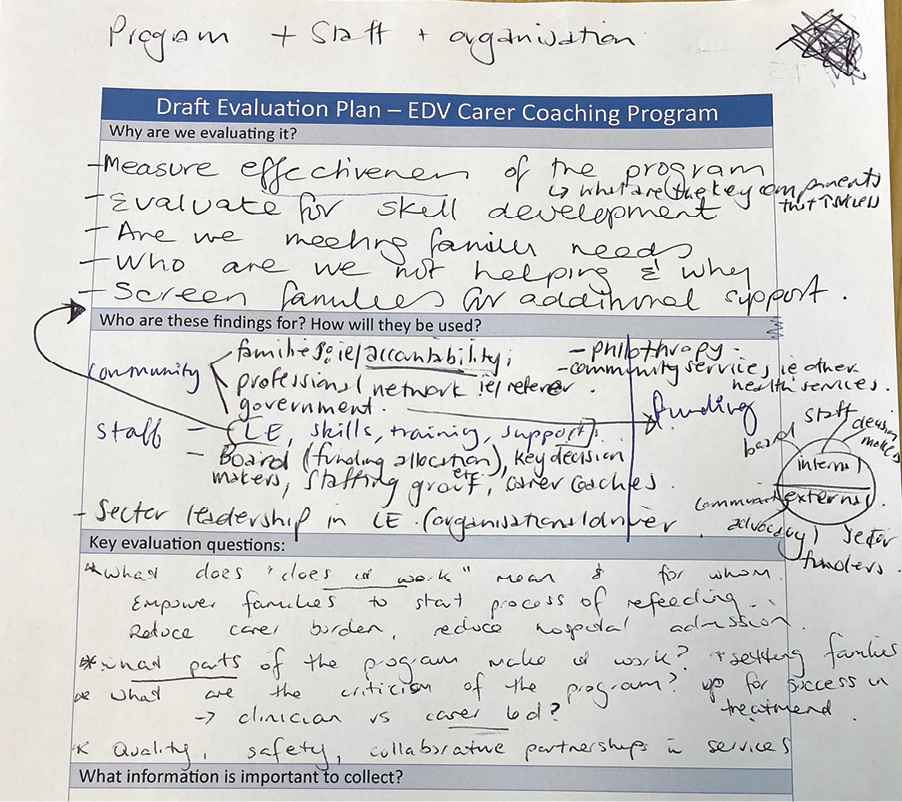 Program + Staff + organisation
Draft Evaluation Plan – EDV Carer Coaching Program
Why are we evaluating it?
-Measure effectiveness of the program
↳ what are the key components
that ↑ skills
- Evaluate for skill development
- Are we meeting families needs
- Who are we not helping & why
- Screen families for additional support.
Who are these findings for? How will they be used?
community
families ie/accountability;
professional network ie/referer.
government.
- philothropy.
- community services, ie other
health services.
funding
staff - (LE, skills, training, support).
- Board (funding allocation), key decision
makers, staffing etc, carer coaches.
- Sector leadership in LE. (organisational driver
board
staff
decision
makers
internal
external
community
advocacy
sector
funders.
Key evaluation questions:
*what does "does it work" mean & for whom.
Empower families to start process of refeeding.
Reduce carer burden, reduce hospital admission.
*what parts of the program make it work?
* what are the criticism of the program?
→ clinician vs carer led?
+ setting families
up for success in
treatment.
* Quality, safety, collaborative partnerships in services
What information is important to collect?